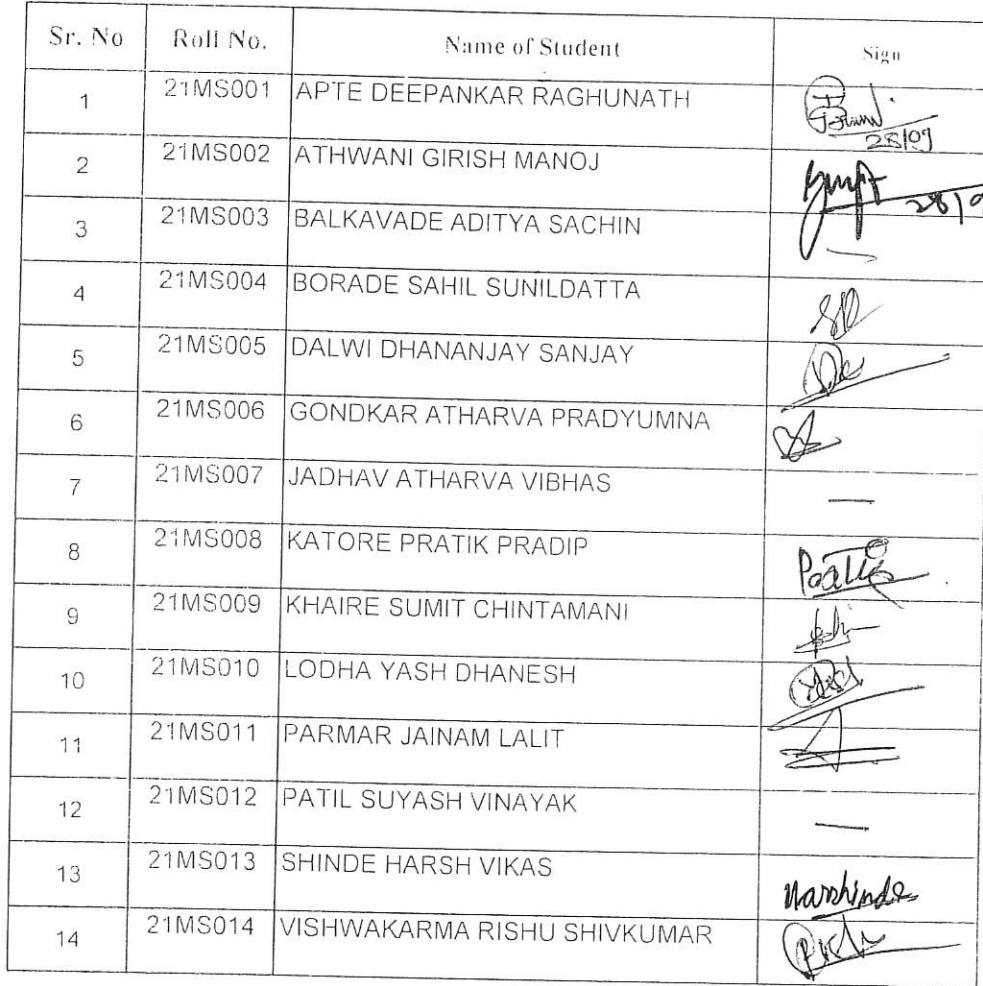 Sr. No Roll No. Name of Student Sign
1 21MS001 APTE DEEPANKAR RAGHUNATH
28/09
2 21MS002 ATHWANI GIRISH MANOJ
3 21MS003 BALKAVADE ADITYA SACHIN —
4 21MS004 BORADE SAHIL SUNILDATTA
5 21MS005 DALWI DHANANJAY SANJAY
6 21MS006 GONDKAR ATHARVA PRADYUMNA
7 21MS007 JADHAV ATHARVA VIBHAS —
8 21MS008 KATORE PRATIK PRADIP
9 21MS009 KHAIRE SUMIT CHINTAMANI
10 21MS010 LODHA YASH DHANESH
11 21MS011 PARMAR JAINAM LALIT
12 21MS012 PATIL SUYASH VINAYAK —
13 21MS013 SHINDE HARSH VIKAS
14 21MS014 VISHWAKARMA RISHU SHIVKUMAR